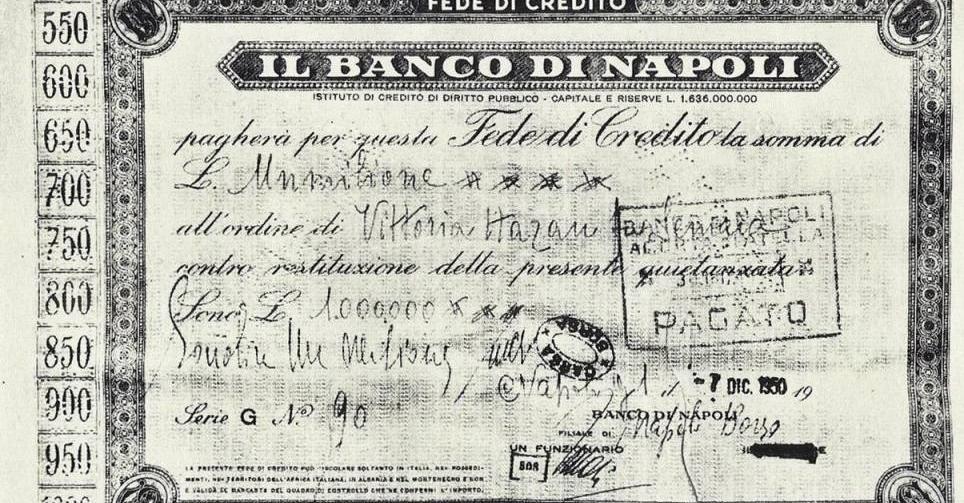 FEDE DI CREDITO
IL BANCO DI NAPOLI
ISTITUTO DI CREDITO DI DIRITTO PUBBLICO - CAPITALE E RISERVE L. 1.636.000.000
pagherà per questa Fede di Credito la somma di
L. Unmilione
all'ordine di Vittoria Hazau
contro restituzione della presente quietanzata
Sono L. 1000000
Napoli il -7 DIC. 1950 19
Serie G N.º 90
BANCO DI NAPOLI
FILIALE DI Napoli Borso
UN FUNZIONARIO
508
LA PRESENTE FEDE DI CREDITO PUÒ CIRCOLARE SOLTANTO IN ITALIA, NEI POSSEDI-
MENTI, NEI TERRITORI DELL'AFRICA ITALIANA, IN ALBANIA E NEL MONTENEGRO E NON
È VALIDA SE MANCANTE DEL QUADRO DI CONTROLLO CHE NE CONFERMI L'IMPORTO.
BANCO DI NAPOLI
PAGATO
CASSA
BORSA
550
600
650
700
750
800
850
900
950